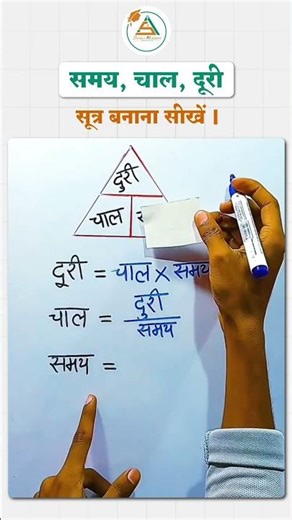 समय, चाल, दूरी
सूत्र बनाना सीखें ।
दुरी
चाल
दूरी = चाल × समय
चाल = दुरी / समय
समय =